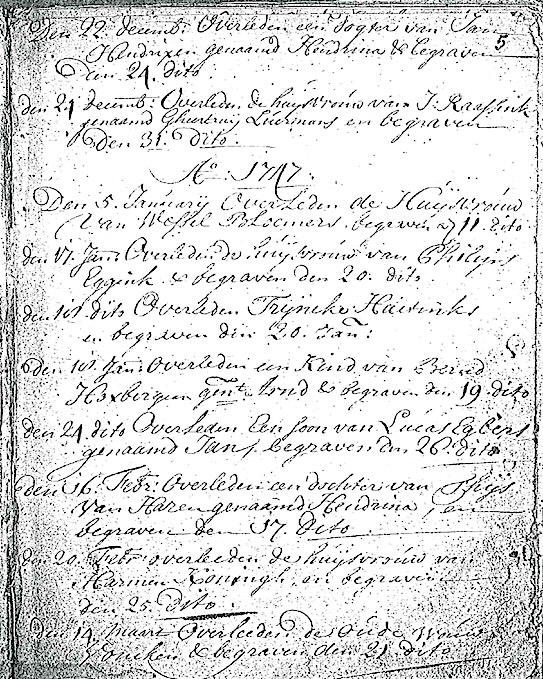 Den 22 decemb: Overleden een dogter van Jan
Hendrixen genaamd Hendrina & begraven
5
Den 24. dito
den 24 decemb: Overleden de huysvrouw van J: Raassink
genaamd Geertruy Luermans en begraven
Den 31. Dito.
Ao. 1747.
Den 5. Januarij Overleden de Huysvrouw
Van Wessel Bloemers begraven 11. dito
den 17. Jan: Overleden de huysvrouw van Philips
Eggink & begraven den 20. dito.
den dito Overleden Tryneke
en begraven den 20. Jan:
den Jan: Overleden een Kind van Berend
gent. Arnd & begraven den 19. dito
den 21. dito Overleden Een soon van Lucas Egbers
genaamd Jans, begraven den 26. dito
den 16. Febr: Overleden een dochter van Thijs
van Haren genaamd Hendrina, en
begraven den 17. Dito
den 20. Febr: overleden de huysvrouw van
Harmen en begraven
den 25. Dito.
Den 14. maart Overleden de Oude
& begraven den 21. dito